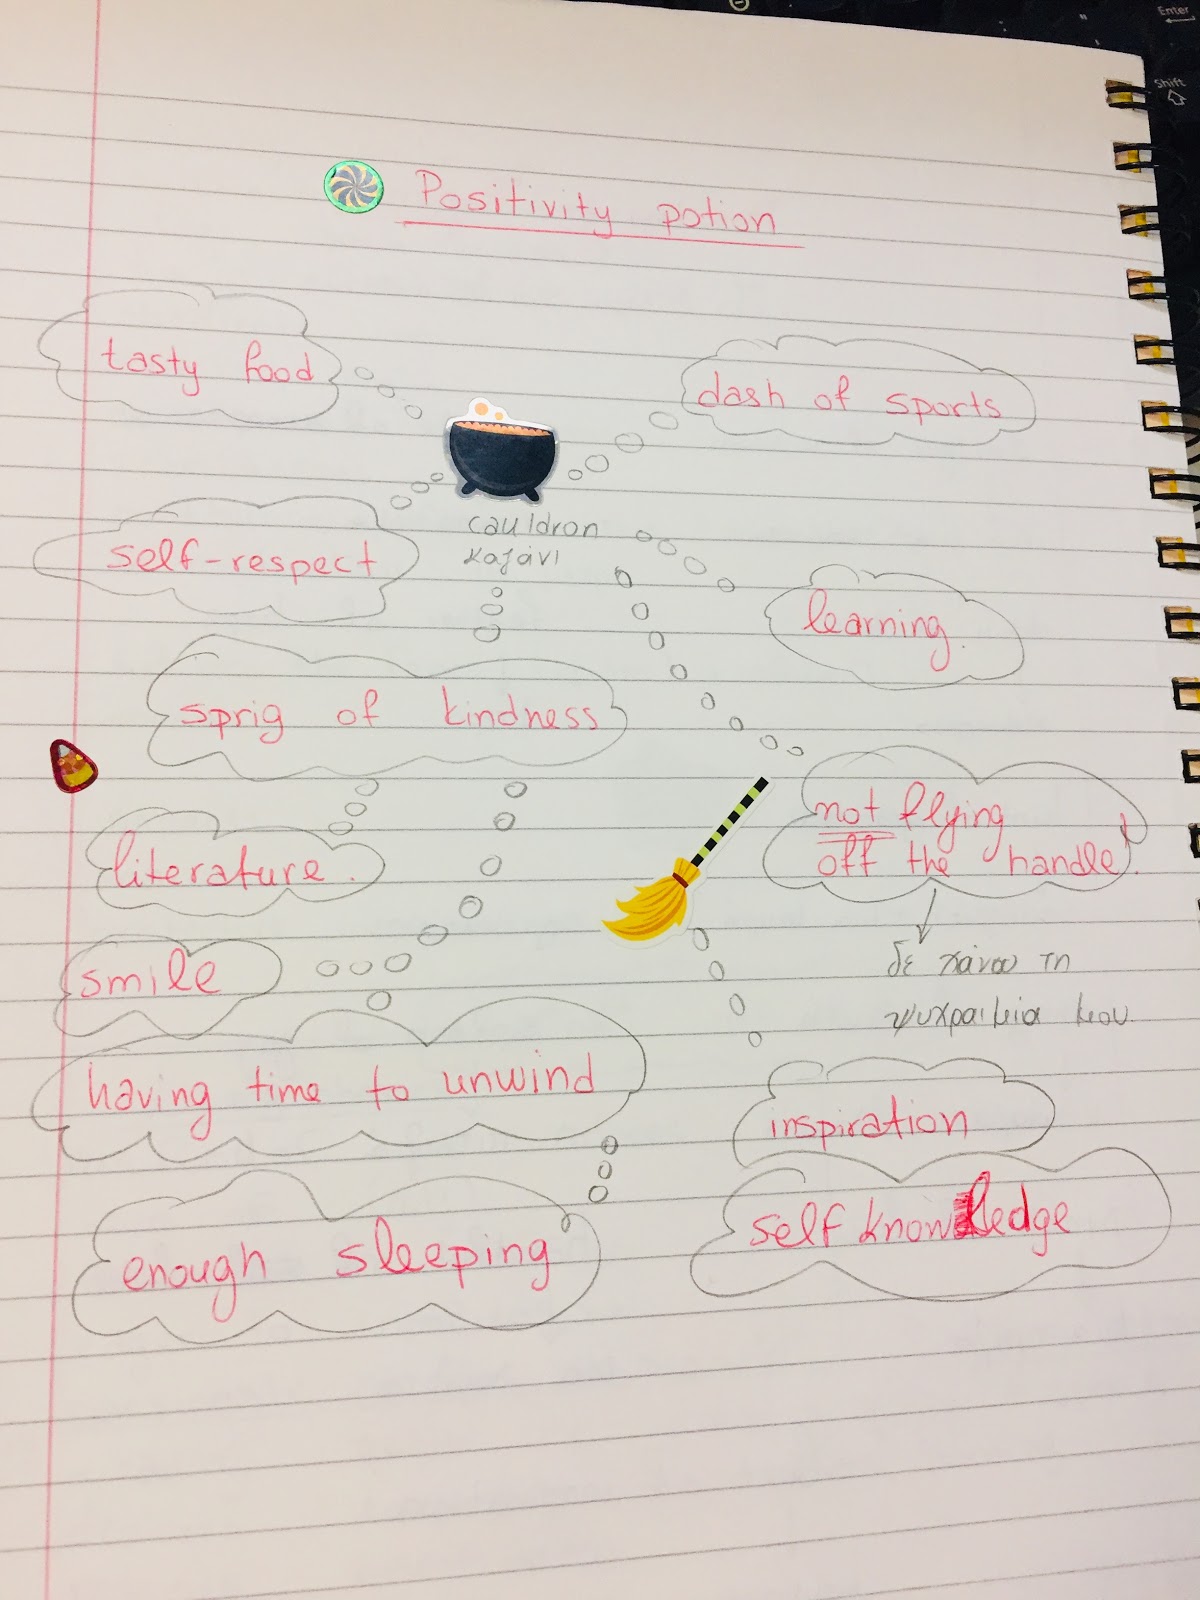 Enter
Shift
Positivity potion
tasty food
dash of sports
cauldron
καζάνι
self-respect
learning.
sprig of kindness
not flying
off the handle!
δε χάνω τη
ψυχραιμία μου.
literature.
smile
having time to unwind
inspiration
self knowledge
enough sleeping